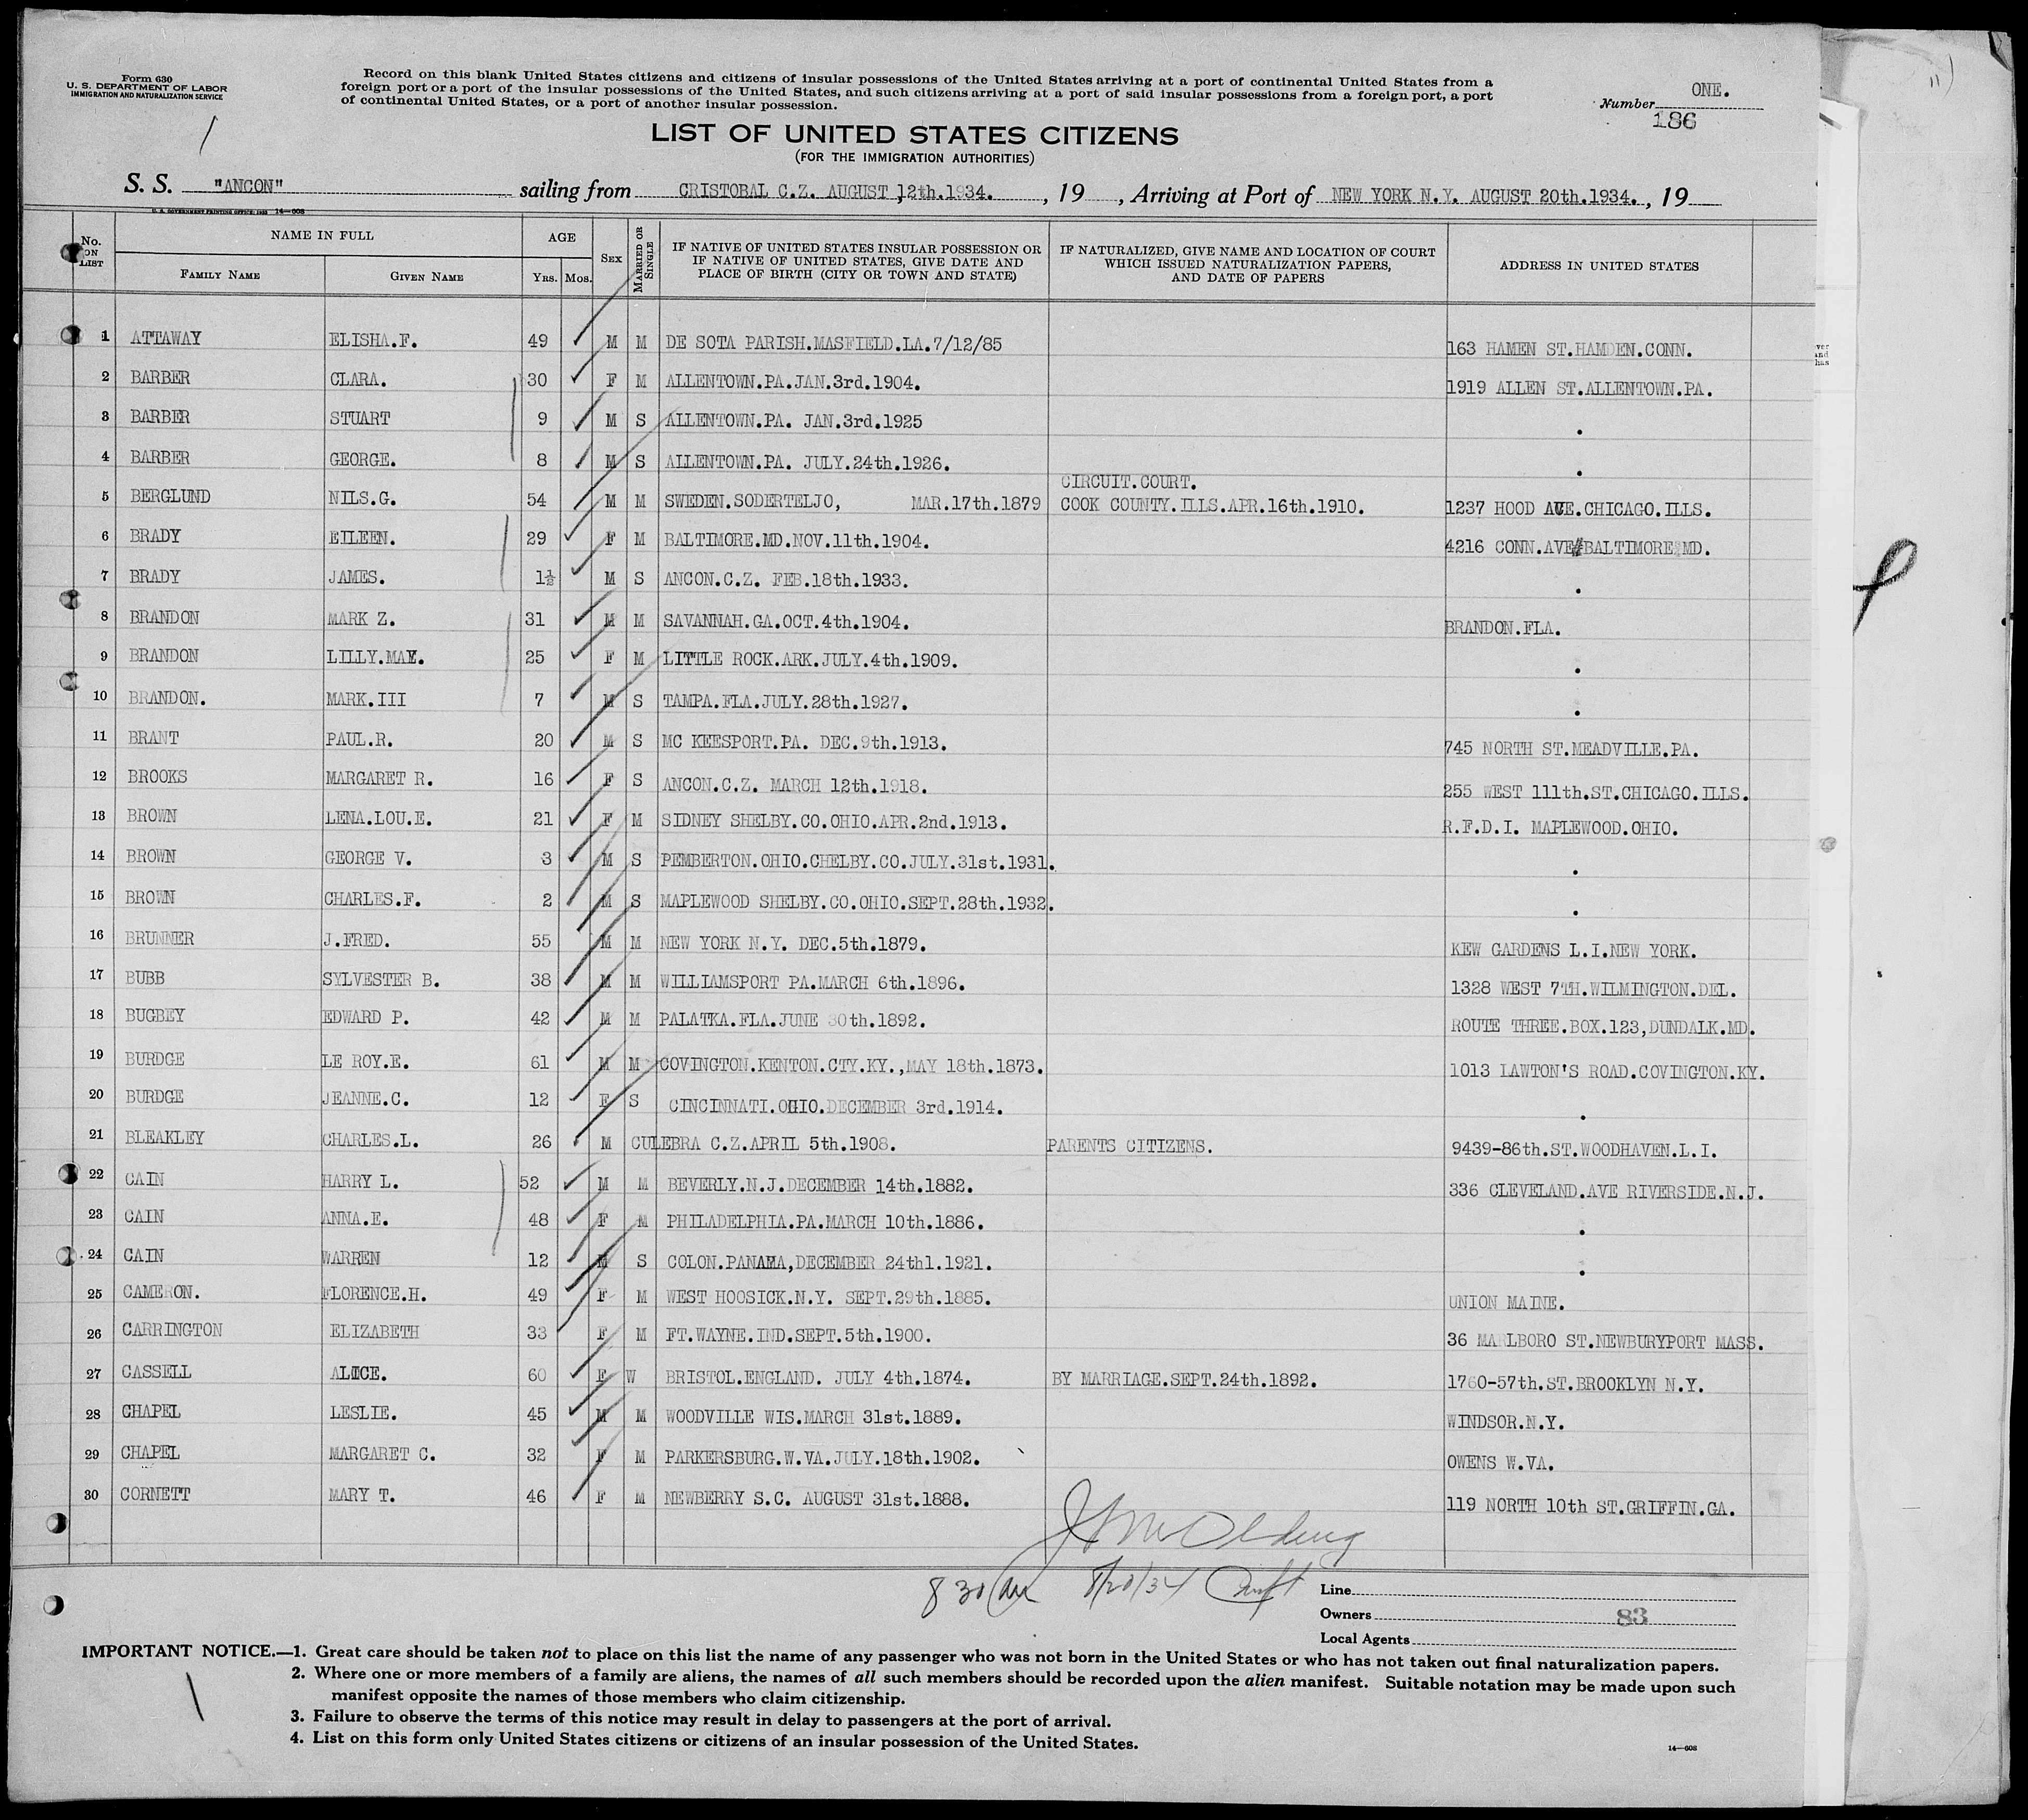 Form 630
U. S. DEPARTMENT OF LABOR
IMMIGRATION AND NATURALIZATION SERVICE
Record on this blank United States citizens and citizens of insular possessions of the United States arriving at a port of continental United States from a
foreign port or a port of the insular possessions of the United States, and such citizens arriving at a port of said insular possessions from a foreign port, a port
of continental United States, or a port of another insular possession.
Number ONE.
186
LIST OF UNITED STATES CITIZENS
(FOR THE IMMIGRATION AUTHORITIES)
S. S. "ANCON" sailing from CRISTOBAL C.Z. AUGUST 12th.1934. , 19 , Arriving at Port of NEW YORK N.Y. AUGUST 20th.1934. , 19
U. S. GOVERNMENT PRINTING OFFICE: 1933 14—608
No. ON LIST NAME IN FULL AGE SEX MARRIED OR SINGLE IF NATIVE OF UNITED STATES INSULAR POSSESSION OR IF NATIVE OF UNITED STATES, GIVE DATE AND PLACE OF BIRTH (CITY OR TOWN AND STATE) IF NATURALIZED, GIVE NAME AND LOCATION OF COURT WHICH ISSUED NATURALIZATION PAPERS, AND DATE OF PAPERS ADDRESS IN UNITED STATES
FAMILY NAME GIVEN NAME YRS. MOS.
1 ATTAWAY ELISHA.F. 49 M M DE SOTA PARISH.MASFIELD.LA.7/12/85 163 HAMEN ST.HAMDEN.CONN.
2 BARBER CLARA. 30 F M ALLENTOWN.PA.JAN.3rd.1904. 1919 ALLEN ST.ALLENTOWN.PA.
3 BARBER STUART 9 M S ALLENTOWN.PA. JAN.3rd.1925 .
4 BARBER GEORGE. 8 M S ALLENTOWN.PA. JULY.24th.1926. .
CIRCUIT.COURT.
5 BERGLUND NILS.G. 54 M M SWEDEN.SODERTELJO, MAR.17th.1879 COOK COUNTY.ILLS.APR.16th.1910. 1237 HOOD AVE.CHICAGO.ILLS.
6 BRADY EILEEN. 29 F M BALTIMORE.MD.NOV.11th.1904. 4216 CONN.AVE BALTIMORE MD.
7 BRADY JAMES. 1½ M S ANCON.C.Z. FEB.18th.1933. .
8 BRANDON MARK Z. 31 M M SAVANNAH.GA.OCT.4th.1904. BRANDON.FLA.
9 BRANDON LILLY.MAY. 25 F M LITTLE ROCK.ARK.JULY.4th.1909. .
10 BRANDON. MARK.III 7 M S TAMPA.FLA.JULY.28th.1927. .
11 BRANT PAUL.R. 20 M S MC KEESPORT.PA. DEC.9th.1913. 745 NORTH ST.MEADVILLE.PA.
12 BROOKS MARGARET R. 16 F S ANCON.C.Z. MARCH 12th.1918. 255 WEST 111th.ST.CHICAGO.ILLS.
13 BROWN LENA.LOU.E. 21 F M SIDNEY SHELBY.CO.OHIO.APR.2nd.1913. R.F.D.I. MAPLEWOOD.OHIO.
14 BROWN GEORGE V. 3 M S PEMBERTON.OHIO.CHELBY.CO.JULY.31st.1931. .
15 BROWN CHARLES.F. 2 M S MAPLEWOOD SHELBY.CO.OHIO.SEPT.28th.1932. .
16 BRUNNER J.FRED. 55 M M NEW YORK N.Y. DEC.5th.1879. KEW GARDENS L.I.NEW YORK.
17 BUBB SYLVESTER B. 38 M M WILLIAMSPORT PA.MARCH 6th.1896. 1328 WEST 7TH.WILMINGTON.DEL.
18 BUGBEY EDWARD P. 42 M M PALATKA.FLA.JUNE 30th.1892. ROUTE THREE.BOX.123,DUNDALK.MD.
19 BURDGE LE ROY.E. 61 M M COVINGTON.KENTON.CTY.KY.,MAY 18th.1873. 1013 LAWTON'S ROAD.COVINGTON.KY.
20 BURDGE JEANNE.C. 12 F S CINCINNATI.OHIO.DECEMBER 3rd.1914. .
21 BLEAKLEY CHARLES.L. 26 M CULEBRA C.Z.APRIL 5th.1908. PARENTS CITIZENS. 9439-86th.ST.WOODHAVEN.L.I.
22 CAIN HARRY L. 52 M M BEVERLY.N.J.DECEMBER 14th.1882. 336 CLEVELAND.AVE RIVERSIDE.N.J.
23 CAIN ANNA.E. 48 F M PHILADELPHIA.PA.MARCH 10th.1886. .
24 CAIN WARREN 12 M S COLON.PANAMA,DECEMBER 24th1.1921. .
25 CAMERON. FLORENCE.H. 49 F M WEST HOOSICK.N.Y. SEPT.29th.1885. UNION MAINE.
26 CARRINGTON ELIZABETH 33 F M FT.WAYNE.IND.SEPT.5th.1900. 36 MARLBORO ST.NEWBURYPORT MASS.
27 CASSELL ALICE. 60 F W BRISTOL.ENGLAND. JULY 4th.1874. BY MARRIAGE.SEPT.24th.1892. 1760-57th.ST.BROOKLYN N.Y.
28 CHAPEL LESLIE. 45 M M WOODVILLE WIS.MARCH 31st.1889. WINDSOR.N.Y.
29 CHAPEL MARGARET C. 32 F M PARKERSBURG.W.VA.JULY.18th.1902. OWENS W.VA.
30 CORNETT MARY T. 46 F M NEWBERRY S.C. AUGUST 31st.1888. 119 NORTH 10th ST.GRIFFIN.GA.
8 30 AM 8/20/34
Line
Owners 83
Local Agents
IMPORTANT NOTICE.—1. Great care should be taken not to place on this list the name of any passenger who was not born in the United States or who has not taken out final naturalization papers.
2. Where one or more members of a family are aliens, the names of all such members should be recorded upon the alien manifest. Suitable notation may be made upon such
manifest opposite the names of those members who claim citizenship.
3. Failure to observe the terms of this notice may result in delay to passengers at the port of arrival.
4. List on this form only United States citizens or citizens of an insular possession of the United States.
14—608